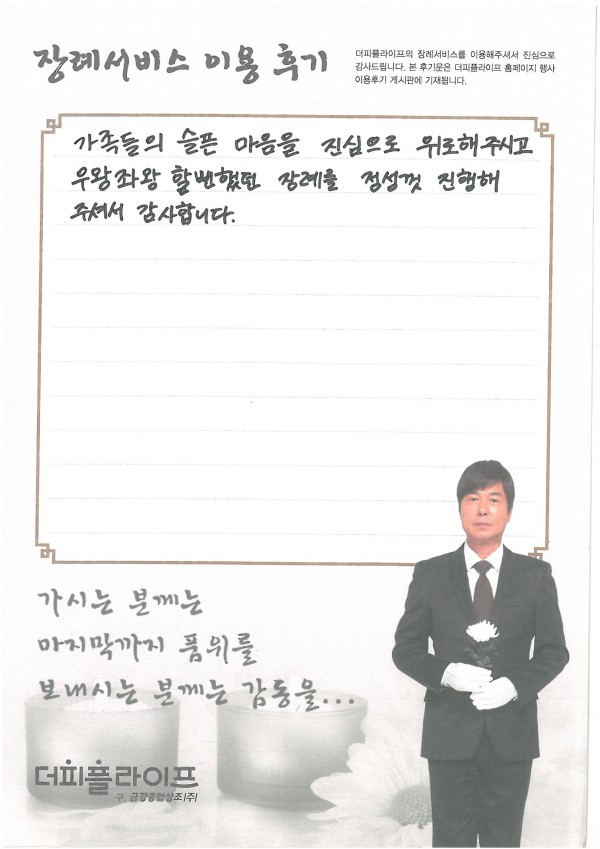 장례서비스 이용 후기
더피플라이프의 장례서비스를 이용해주셔서 진심으로
감사드립니다. 본 후기문은 더피플라이프 홈페이지 행사
이용후기 게시판에 기재됩니다.
가족들의 슬픈 마음을 진심으로 위로해주시고
우왕좌왕 할뻔했던 장례를 정성껏 진행해
주셔서 감사합니다.
가시는 분께는
마지막까지 품위를
보내시는 분께는 감동을...
더피플라이프
구. 금강종합상조(주)